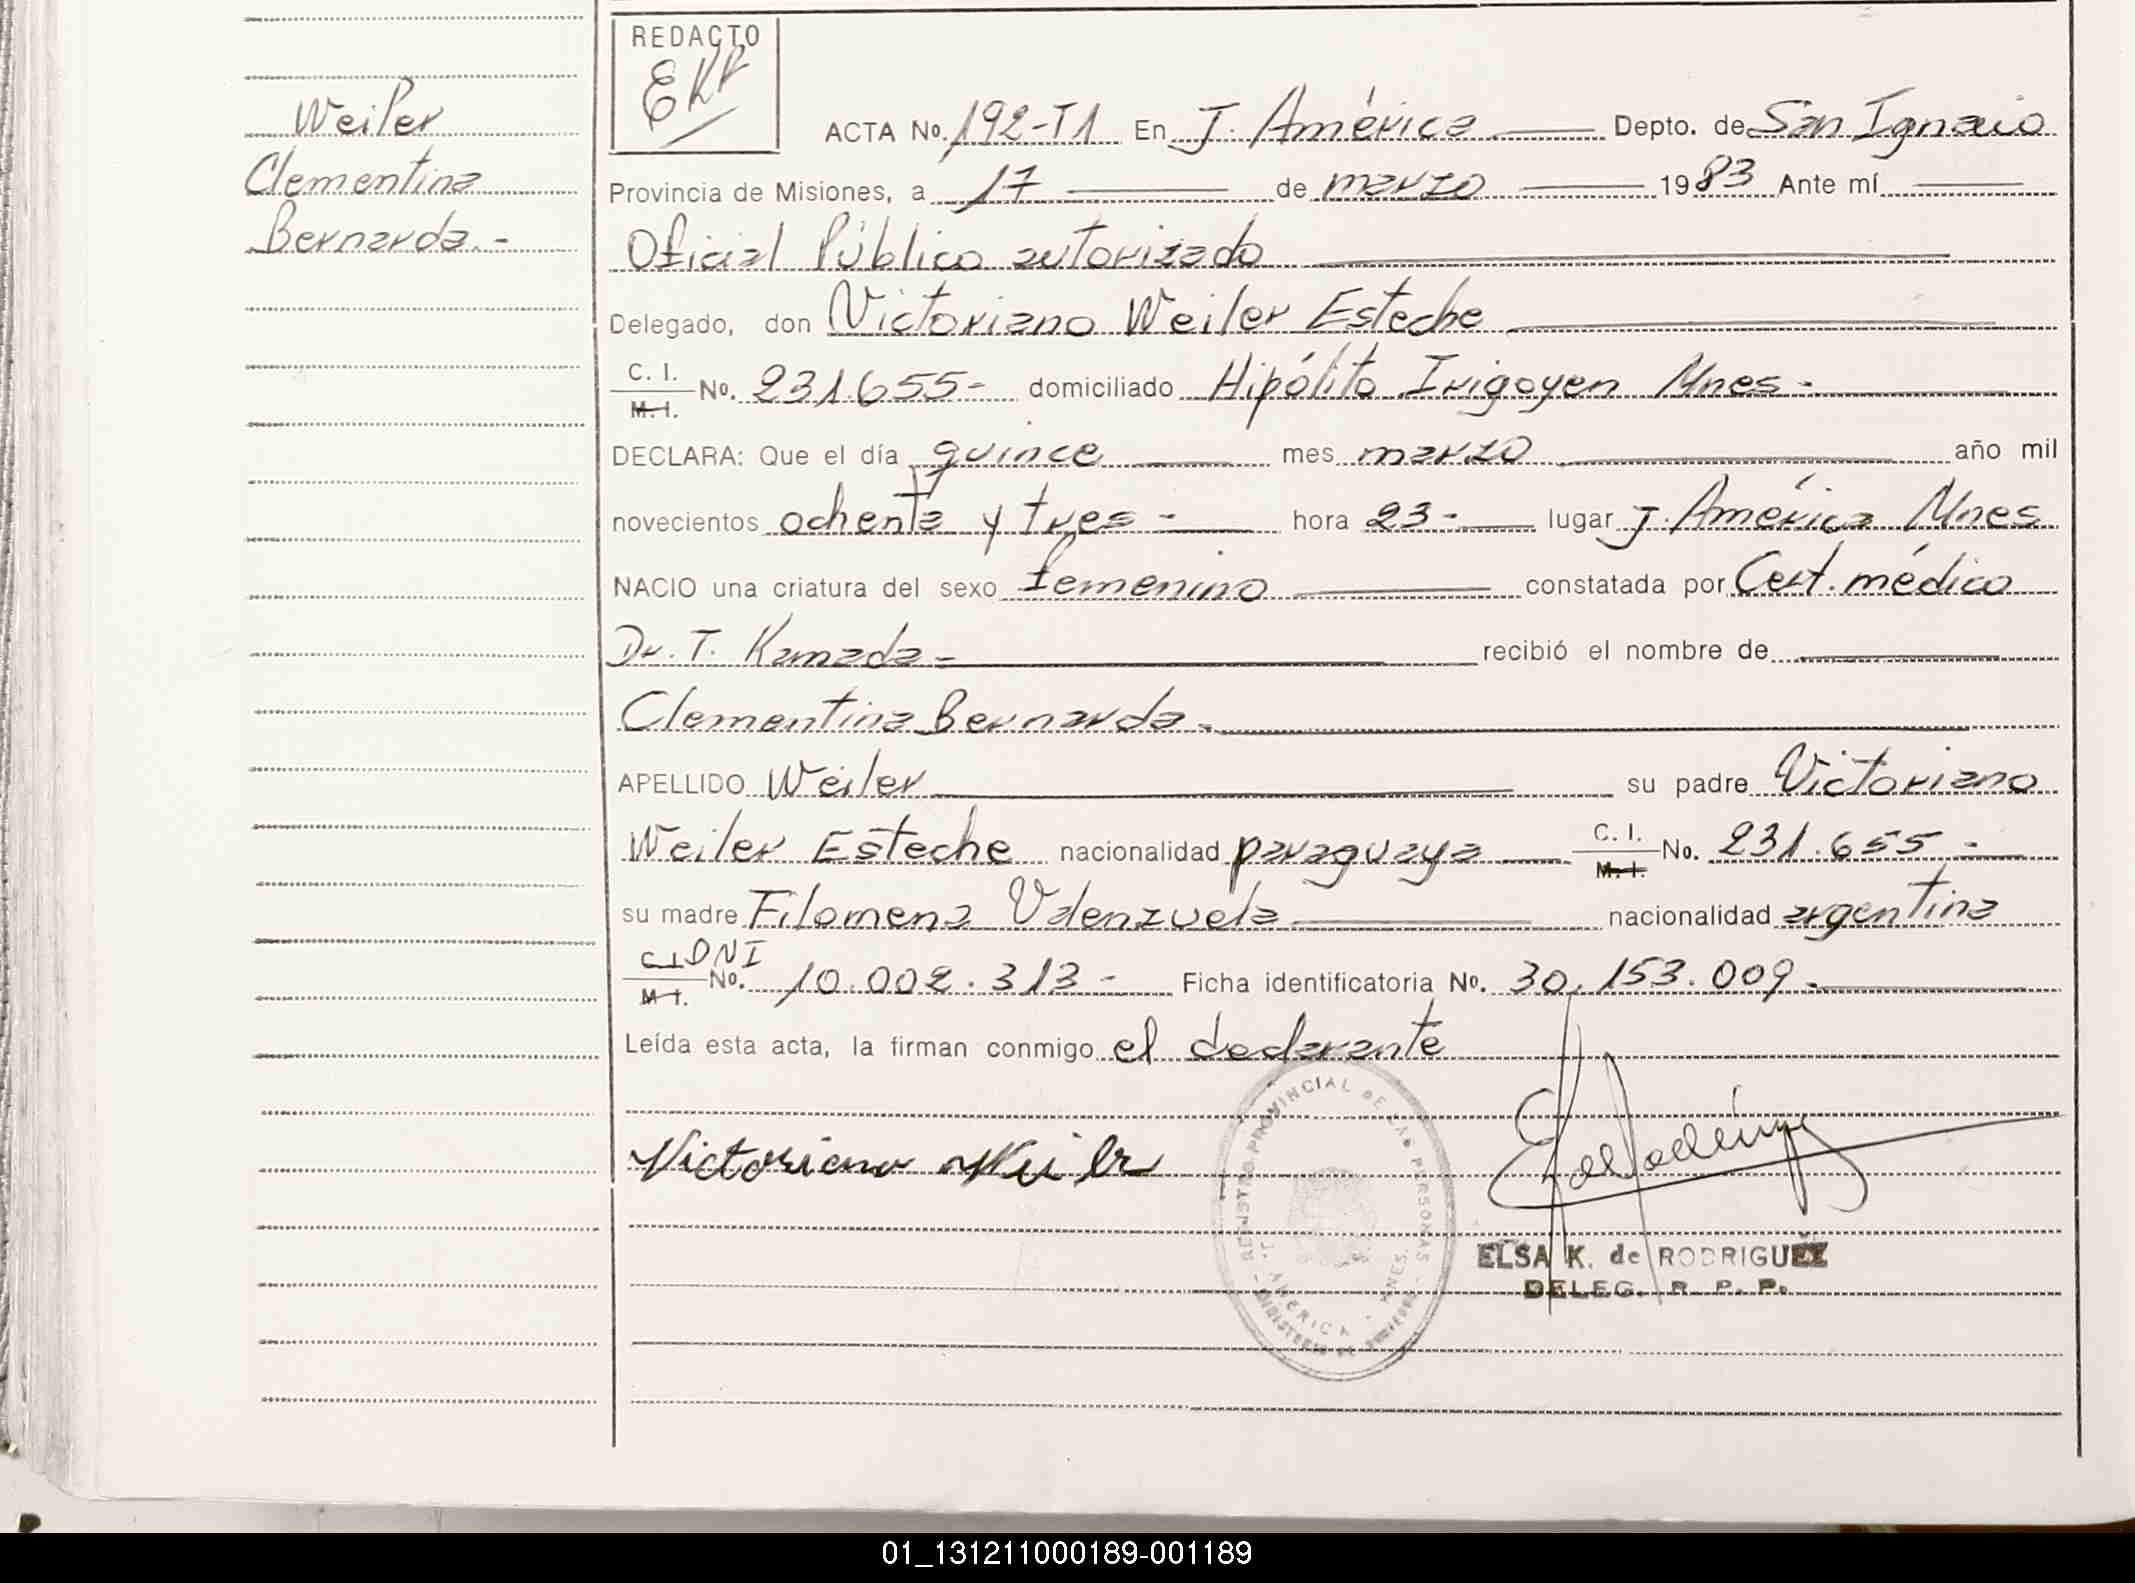 Weiler
Clementina
Bernarda.-
REDACTO
EKR
ACTA No. 192-T1 En J. América Depto. de San Ignacio
Provincia de Misiones, a 17 de marzo 1983 Ante mí
Oficial Público autorizado
Delegado, don Victoriano Weiler Esteche
C. I.
M. I.
No. 231.655- domiciliado Hipólito Irigoyen Mnes-
DECLARA: Que el día quince mes marzo año mil
novecientos ochenta y tres- hora 23- lugar J. América Mnes
NACIO una criatura del sexo femenino constatada por Cert. médico
Dr. T. Kamada- recibió el nombre de
Clementina Bernarda-
APELLIDO Weiler su padre Victoriano
Weiler Esteche nacionalidad paraguaya C. I. M. I. No. 231.655-
su madre Filomena Valenzuela nacionalidad argentina
C I DNI
M I. No. 10.002.313- Ficha identificatoria No. 30.153.009-
Leída esta acta, la firman conmigo el declarante
Victoriano Weiler
REGISTRO PROVINCIAL DE LAS PERSONAS
J. AMERICA - MNES.
MINISTERIO DE GOBIERNO
ELSA K. de RODRIGUEZ
DELEG. R. P. P.
01_131211000189-001189